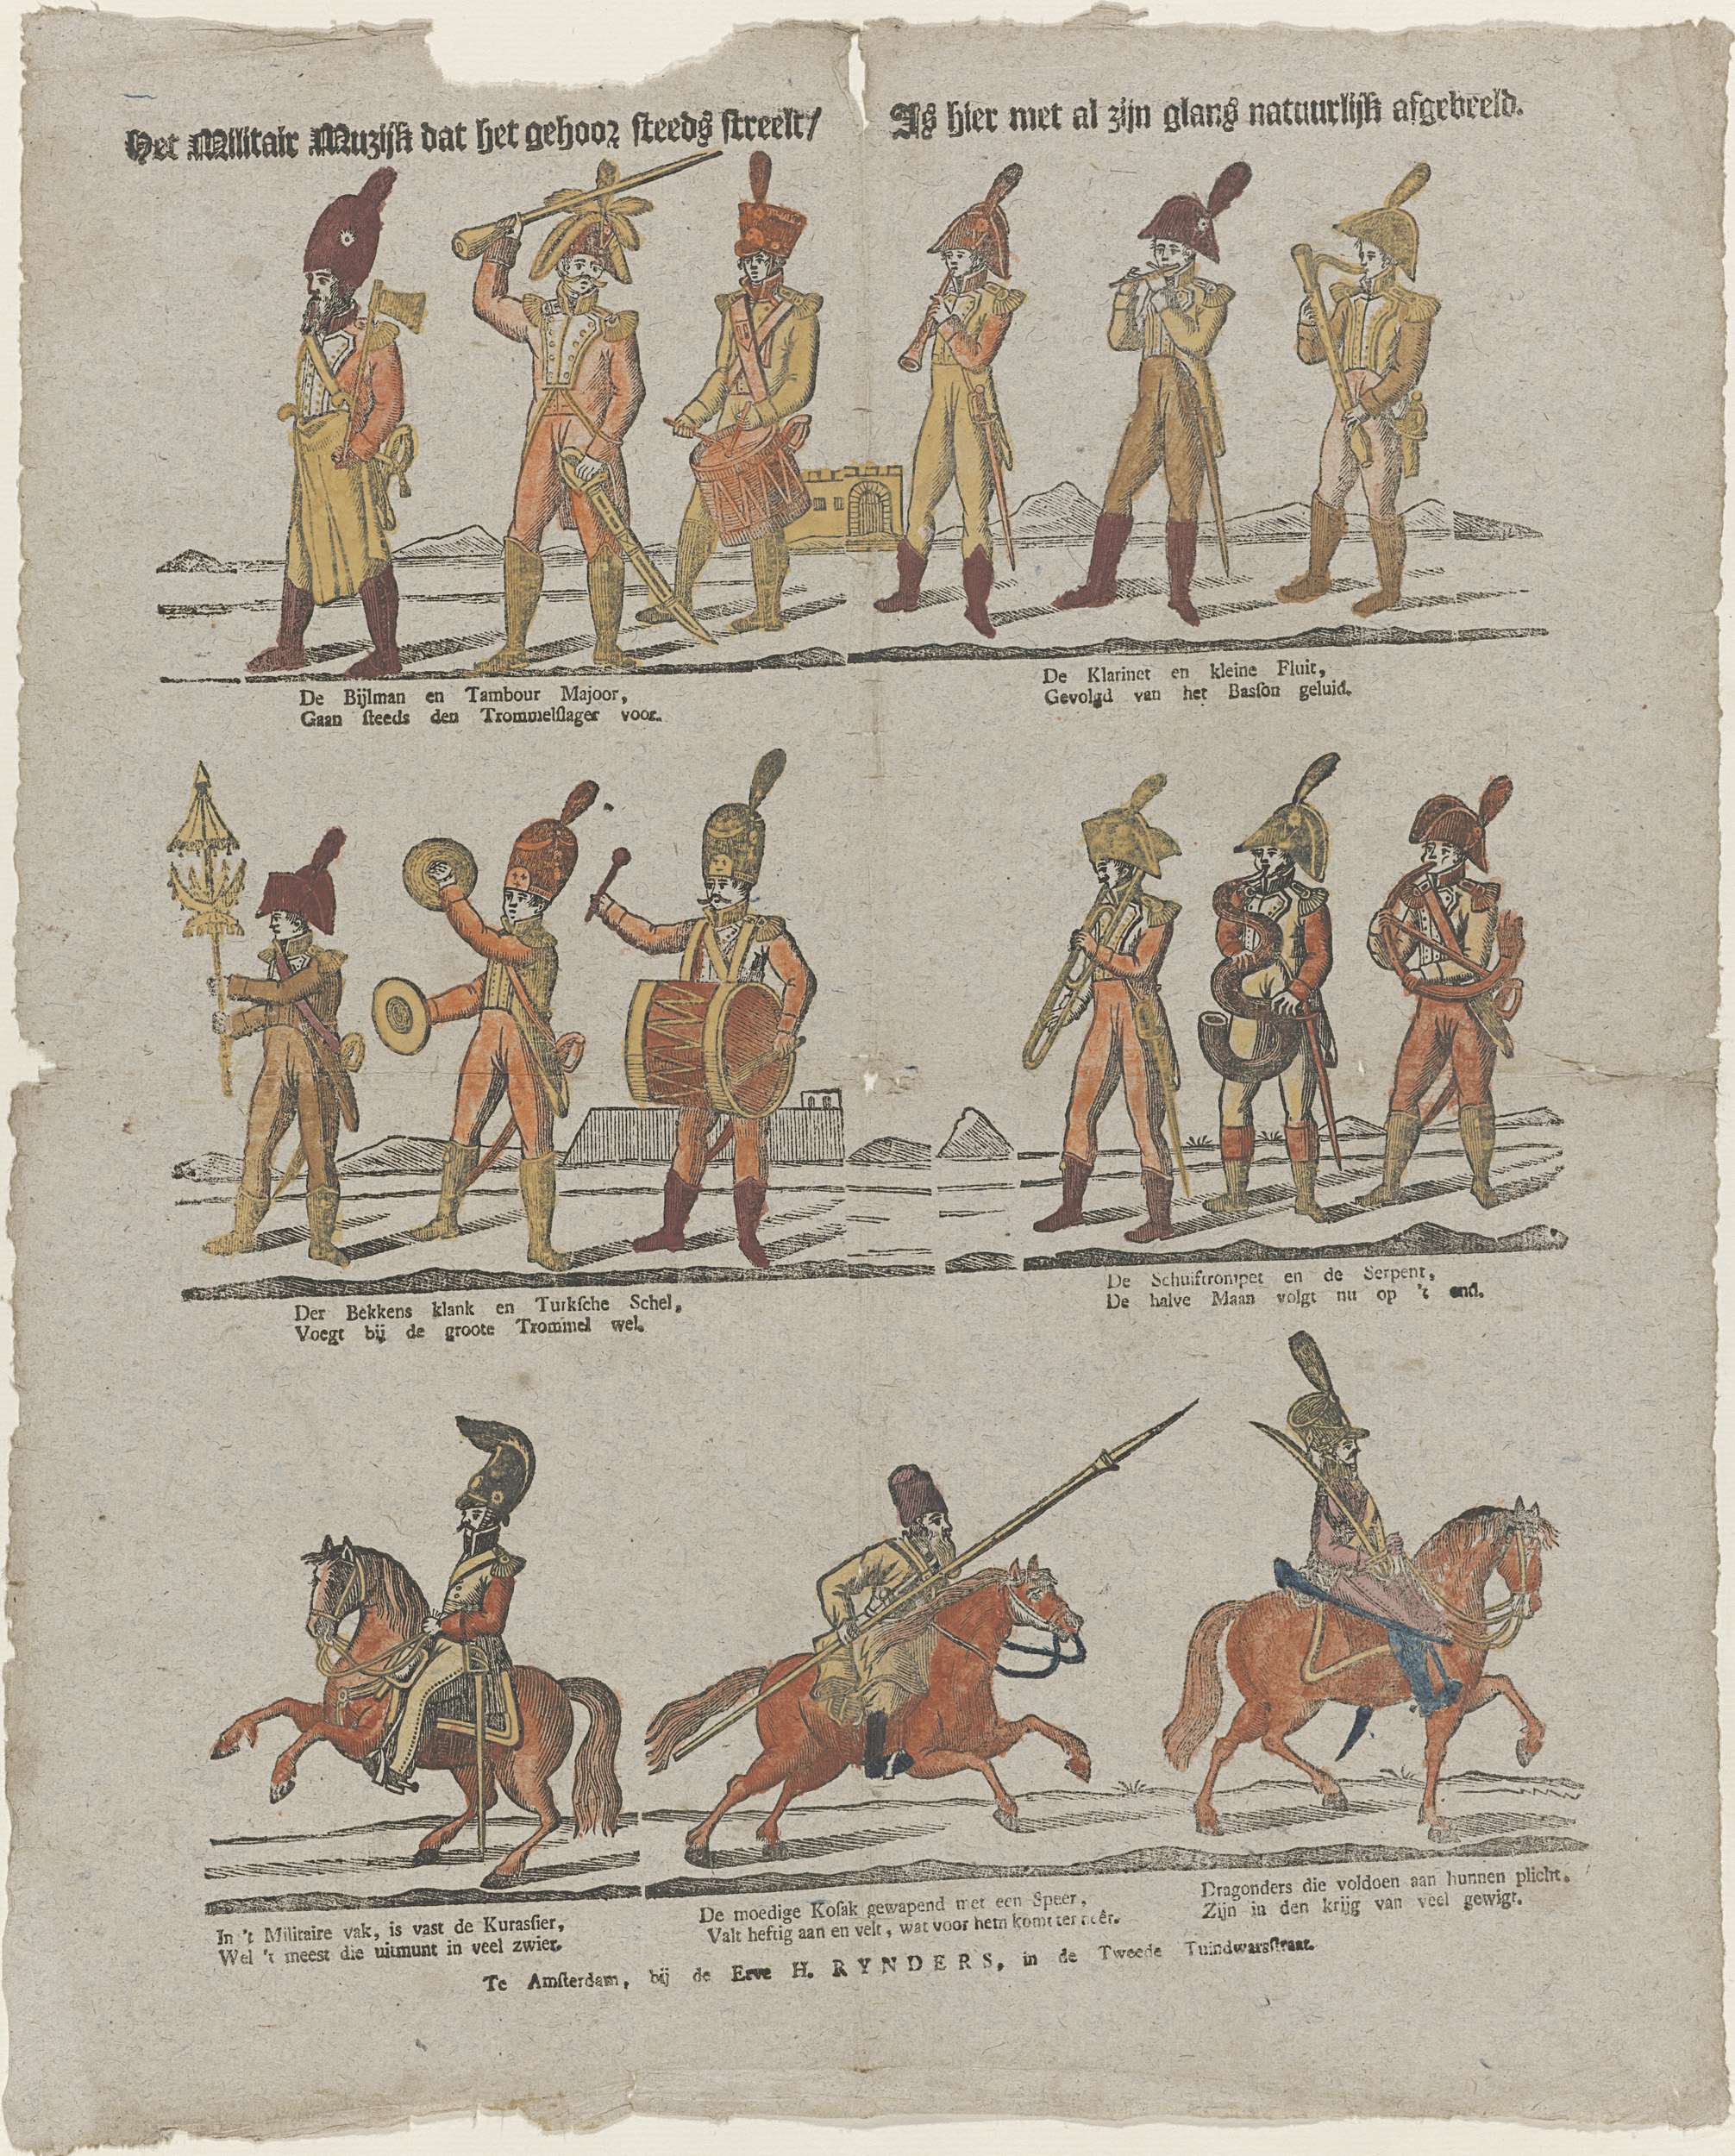 Het Militair Muzijk dat het gehoor steeds streelt/ Is hier met al zijn glans natuurlijk afgebeeld.
De Bijlman en Tambour Majoor,
Gaan ſteeds den Trommelſlager voor.
De Klarinet en kleine Fluit,
Gevolgd van het Basſon geluid.
Der Bekkens klank en Turkſche Schel,
Voegt bij de groote Trommel wel.
De Schuiftrompet en de Serpent,
De halve Maan volgt nu op 't end.
In 't Militaire vak, is vast de Kurasſier,
Wel 't meest die uitmunt in veel zwier.
De moedige Koſak gewapend met een Speer,
Valt heftig aan en velt, wat voor hem komt ter neêr.
Dragonders die voldoen aan hunnen plicht,
Zijn in den krijg van veel gewigt.
Te Amſterdam, bij de Erve H. RYNDERS, in de Tweede Tuindwarsſtraat.